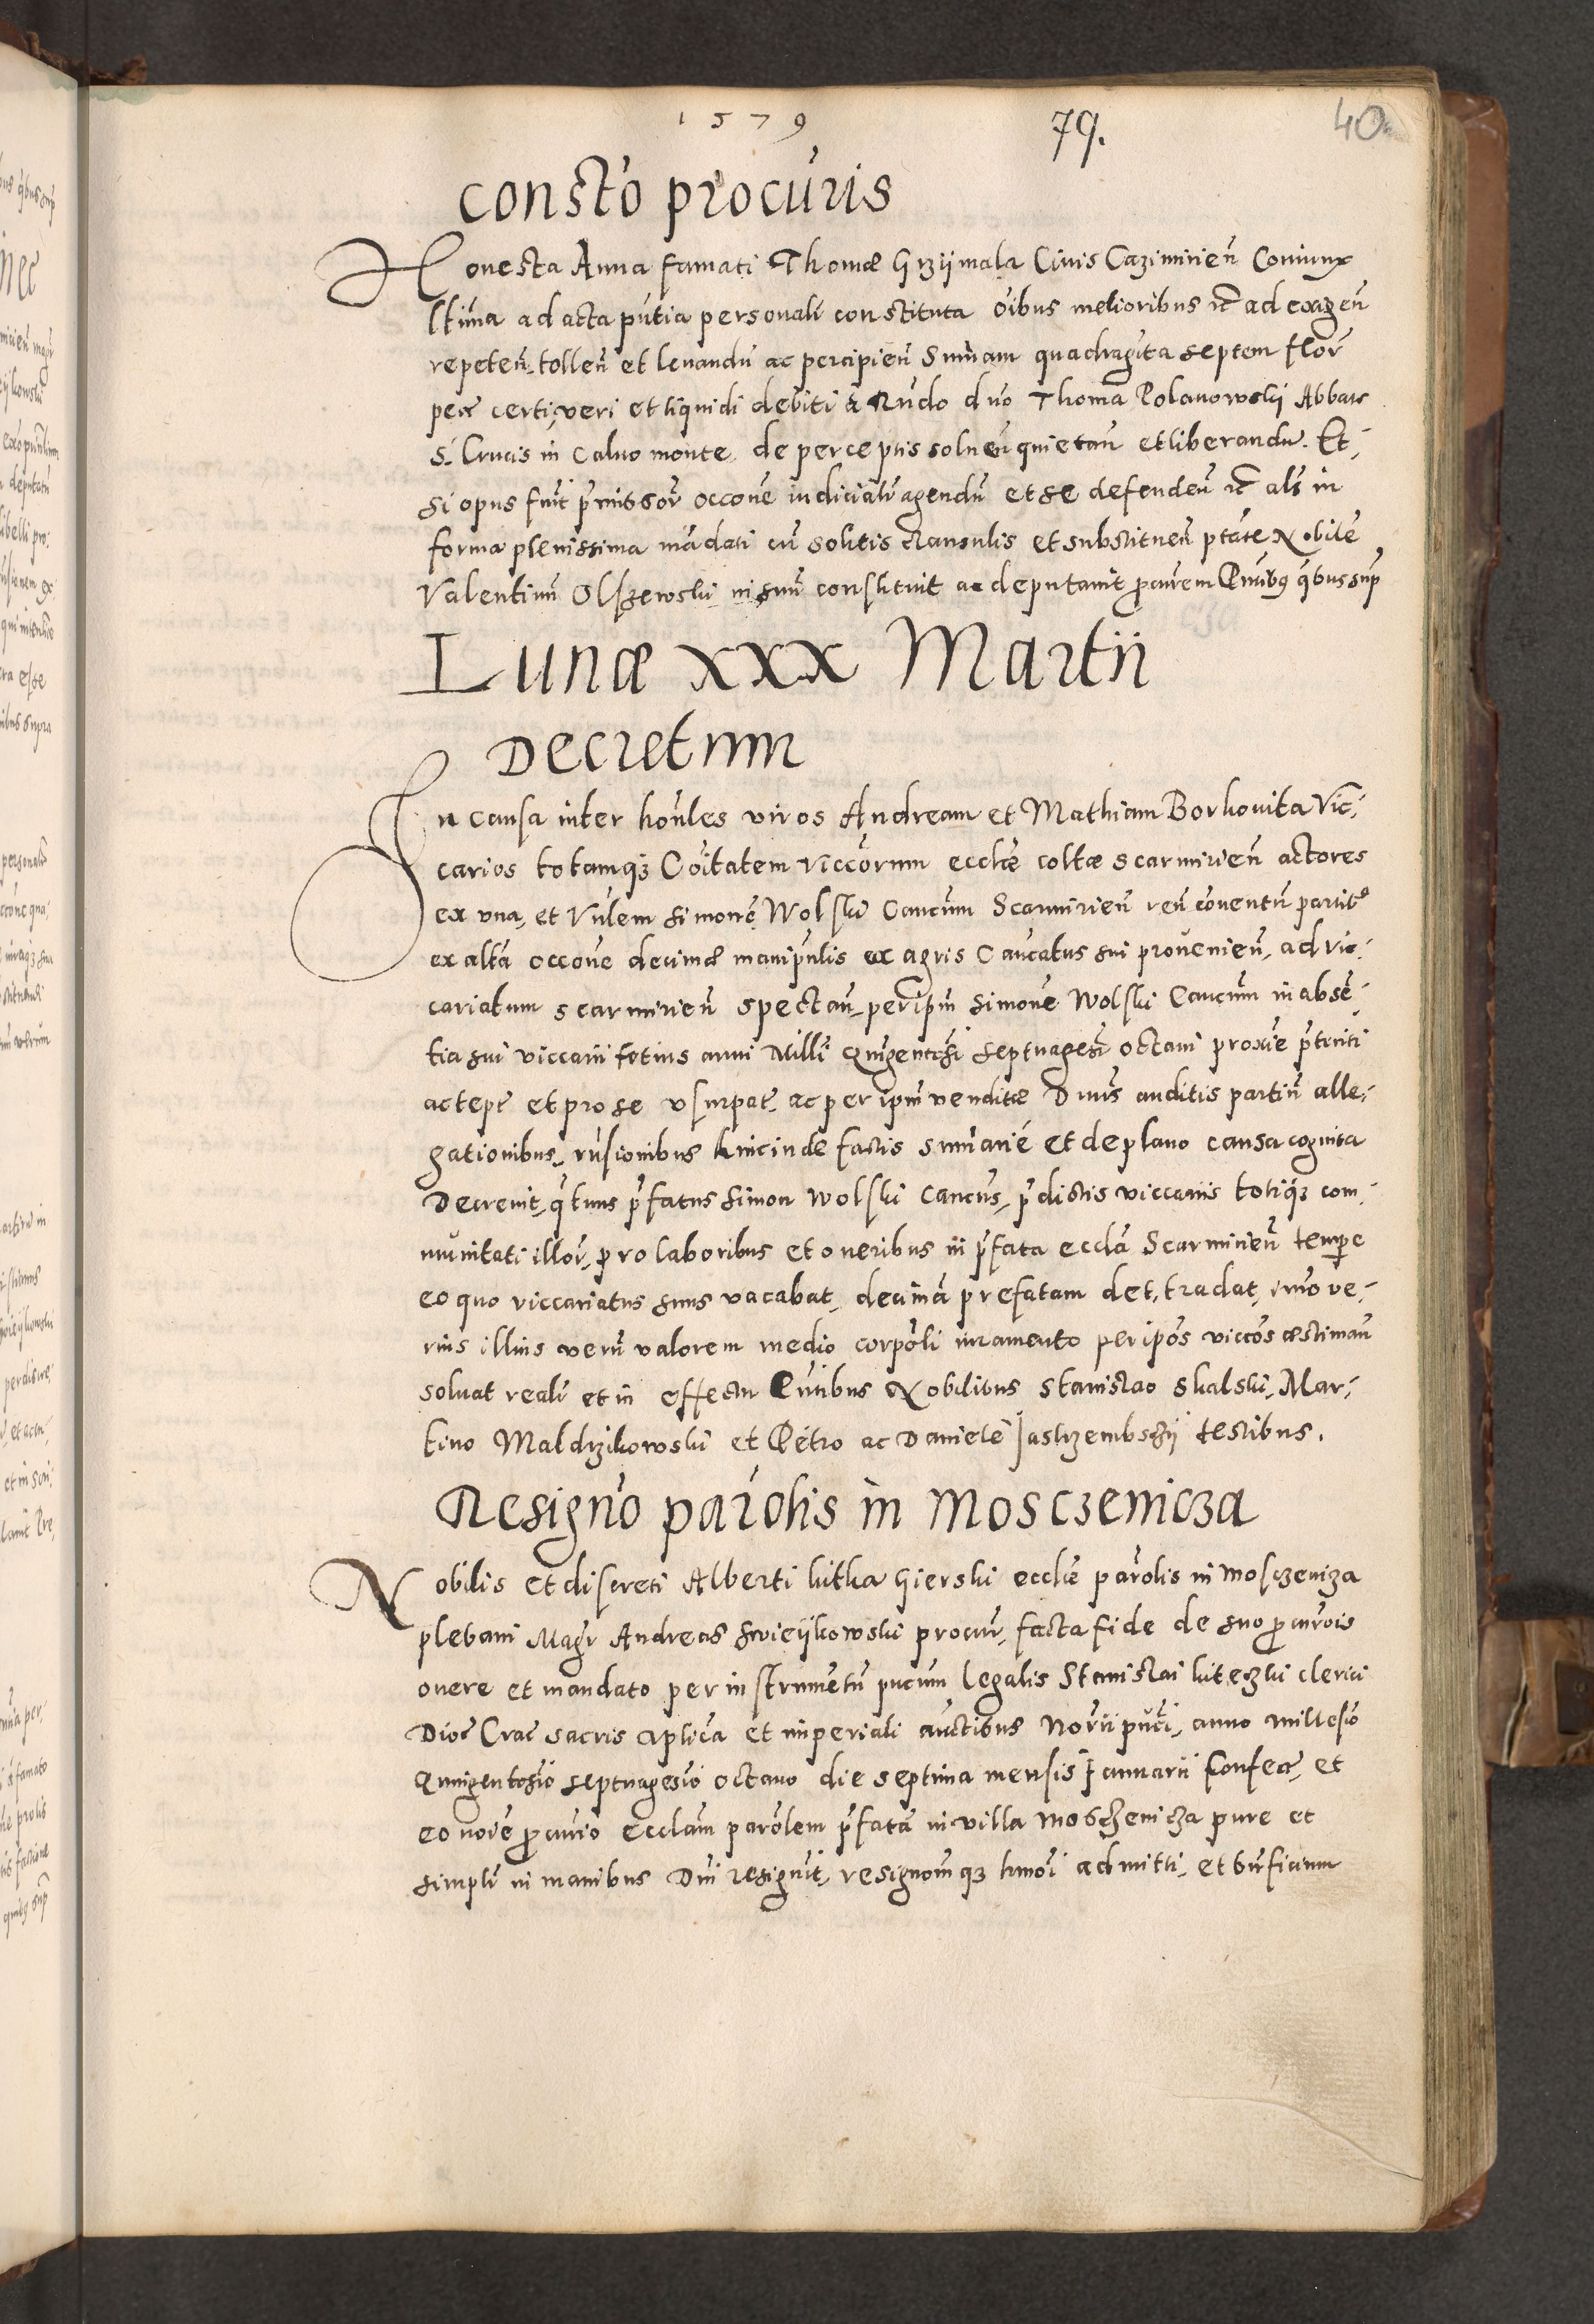 1579
79.
40
Constō procūris
Honesta Anna famati Thomæ Grzijmala Civis Cazimirien̄ Coniunx
ltīma ad acta pūtia personalr̄ constituta oībus melioribus rc̄ ad exigen̄
repeten̄ tollen̄ et levandū ac percipien̄ Sum̄am quadragīta septem flor̄
pec̄ certi, veri et liquidi debiti à Rn̄do dn̄o Thoma Polanowskj Abbate
S. Crucis in Calvo monte, de perceptis solven̄ quietan̄ et liberandū. Et
si opus fuīt pr̄missor̄ occōne iudicialr̄ agendū et se defenden̄ rc̄ als̄ in
forma plenissima mādati cū solitis clausulis et substituen̄ ptāte Nobilē
Valentinū Olszewski in suū constituit ac deputavit procūrem Pn̄tibꝯ q̄bus sup̄
Lunæ xxx Martii
Decretum
In causa inter honr̄les viros Andream et Mathiam Borkovita Vic-
carios totamqꝫ Cōitatem viccōrum eccliæ coltæ Scarmirien̄ actores
ex una, et Vn̄lem Simonē Wolski Cancūm Scarmirien̄ reū cōventū partibꝰ
ex altā occōne decimæ manipūlis ex agris Cancatus sui provenien̄, ad vic-
cariatum Scarmirien̄ spectan̄, per ipm̄ Simonē Wolski Cancūm in absē-
tia sui viccarii totius anni Millī Quigentesī Septuagesī octavi proxīe pr̄teriti
accept̄ et pro se usurpat̄, ac per ipm̄ venditæ Dn̄us auditis partiū alle-
gationibus, rn̄sionibus hincinde factis sum̄ariē et de plano causa cognita
Decrevit, q̄tenus pr̄fatus Simon Wolski Cancūs, pr̄dictis viccariis totiqꝫ com-
munitati illor̄, pro laboribus et oneribus in pr̄fata ecclīa Scarmirien̄ tempe
eo quo viccariatus suus vacabat, decimā prefatam det, tradat, imo ve-
rius illius verū valorem medio corpōli iuramento per ipōs viccōs æstiman̄
solvat realr̄ et in effectu Pn̄tibus Nobilibus Stanislao Skalski, Mar-
tino Maldrzikowski et Petro ac Daniele Jastrzembszij testibus.
Resignō parōlis in Mosczenicza
Nobilis et discreti Alberti kitka Gierski eccliæ parōlis in Mosczeniza
plebani Magr̄ Andreas Swieijkowski procur̄, facta fide de suo procūrōis
onere et mandato per instrumētū pucum Legalis Stanislai kiteczki clerici
Dioc̄ Crac̄ sacris aplicā et imperiali auctibus Norīi pucī, anno millesīo
Quingentesīo septuagesīo octavo die septima mensis Januarii Confec̄, et
eo noīe procūrio ecclīam parōlem pr̄fatā in villa Moszczenicza pure et
simplr̄ in manibus Dn̄i resignīt, resignōmqꝫ hmōi admitti, et bn̄ficium